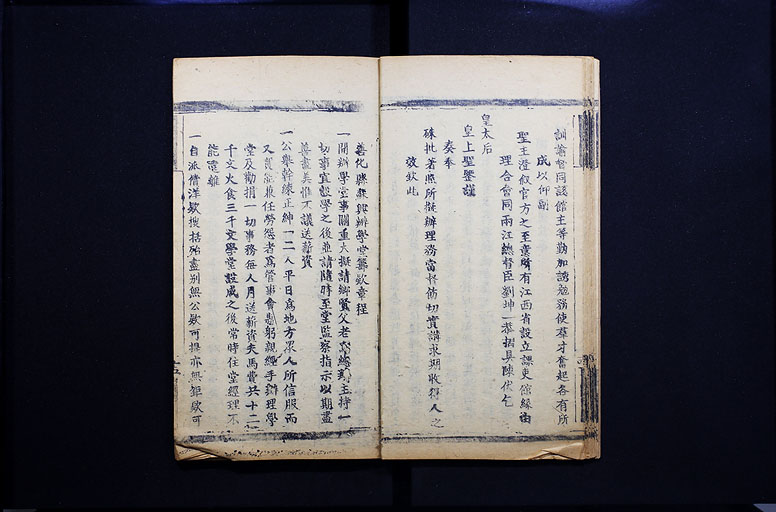 訓諭會同該館主等勤加誘勉務使羣才奮起各有所
成以仰副
聖主澄敘官方之至意所有江西省設立課吏館緣由
理合會同兩江總督臣劉坤一恭摺具陳伏乞
皇太后
皇上聖鑒謹
奏奉
硃批著照所擬辦理務當督飭切實講求期收得人之
效欽此
善化縣 興辦學堂籌欵章程
一開辦學堂事關重大擬請鄉賢父老 主持一
切事宜設學之後並請隨時至堂監察指示以期盡
善盡美惟不議送薪資
一公舉幹練正紳一二人平日為地方眾人所信服而
又 能兼任勞怨者為管事會 躬親經手辦理學
堂及勸捐一切事務每人月送薪資夫馬費共十二
千文火食三千文學堂設成之後常時住堂經理不
能 離
一自派償洋欵搜括殆盡別無公欵可提亦無鉅欵可